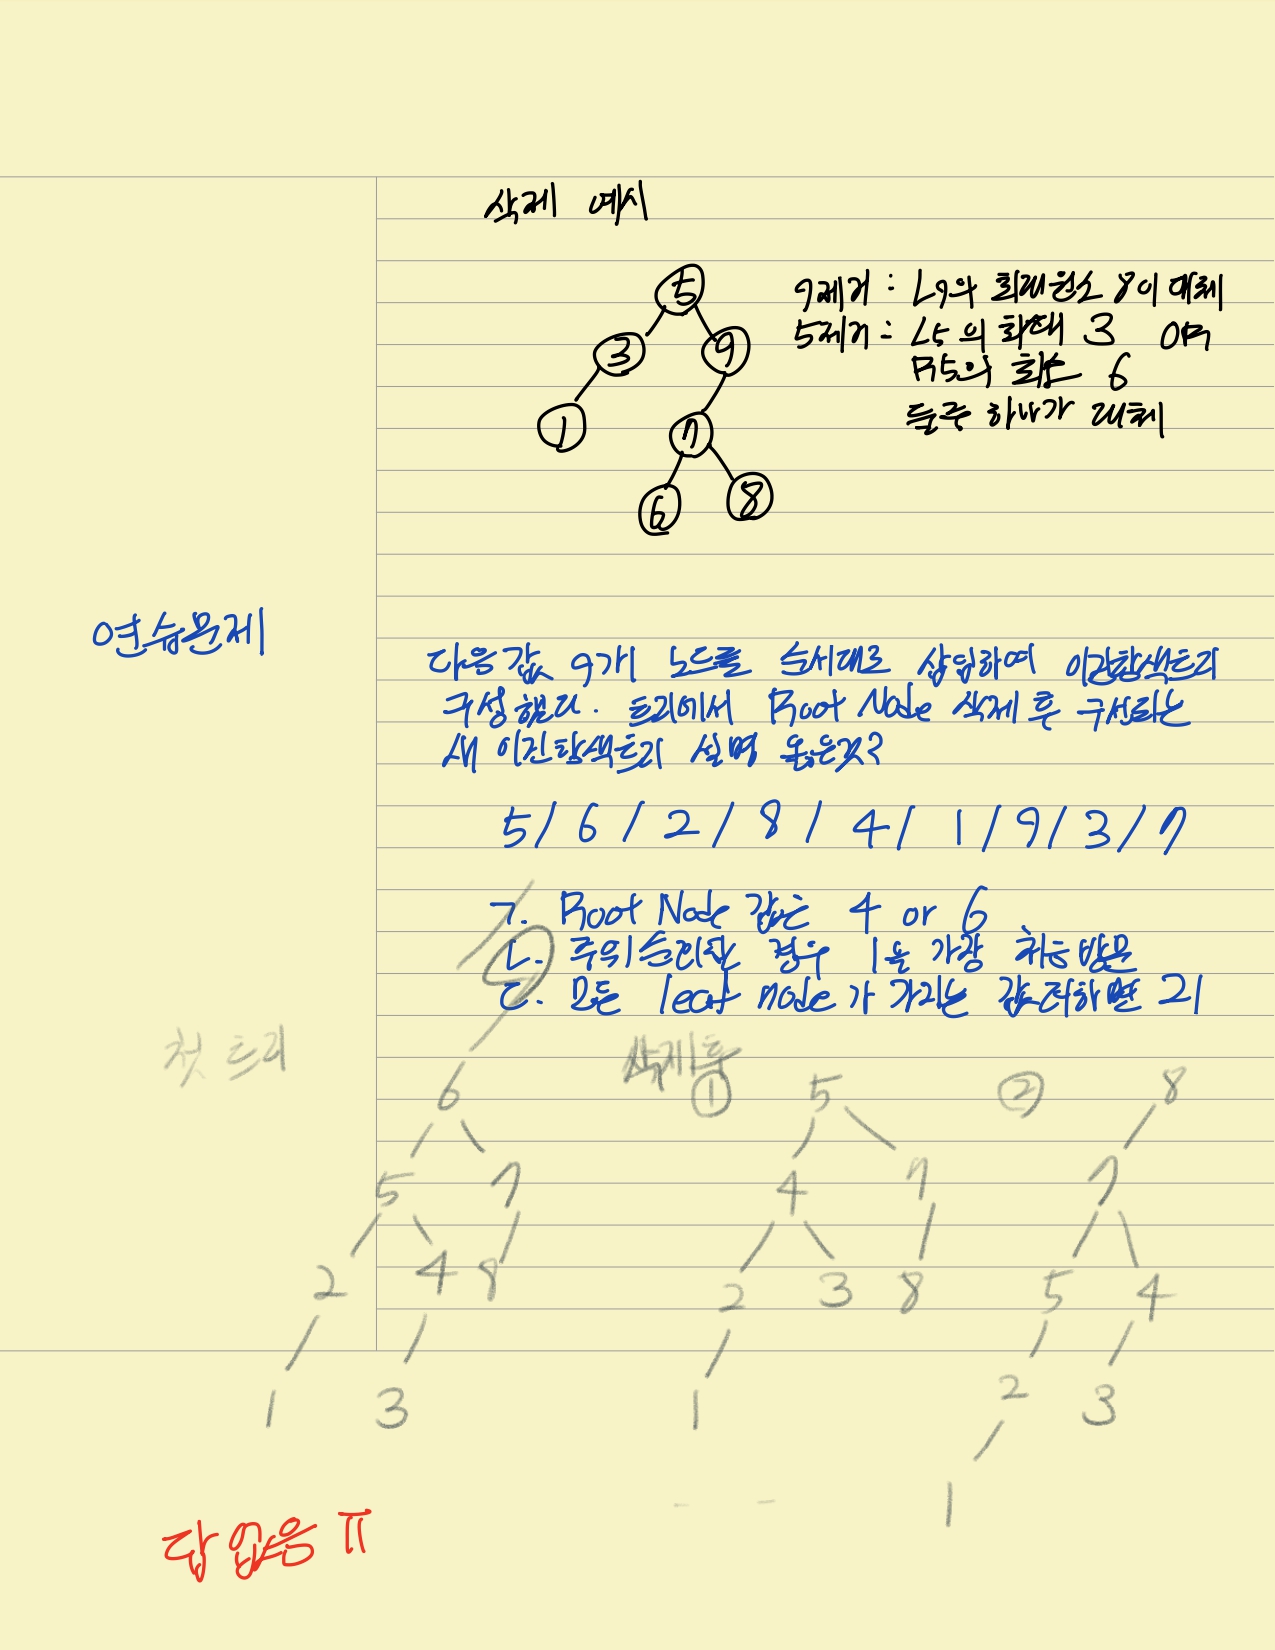 삭제 예시
5
3 9
1 7
6 8
9제거 : L9의 최대원소 8이 대체
5제거 : L5의 최대 3 or
R5의 최소 6
둘중 하나가 대체
연습문제
다음 값 9개 노드를 순서대로 삽입하여 이진탐색트리
구성했다. 트리에서 Root Node 삭제 후 구성되는
새 이진탐색트리 설명 옳은것?
5 / 6 / 2 / 8 / 4 / 1 / 9 / 3 / 7
ㄱ. Root Node 값은 4 or 6
ㄴ. 후위순회한 경우 1을 가장 처음 방문
ㄷ. 모든 leaf node가 가지는 값 더하면 21
첫 트리
9
6
5 7
2 4 8
1 3
삭제 후
① 5
4 7
2 3 8
1
② 8
7
5 4
2 3
1
답없음 ㅠ